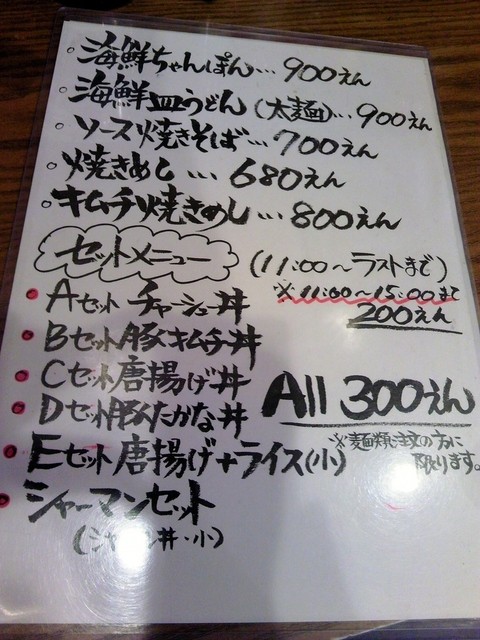 ・海鮮ちゃんぽん…900えん
。海鮮皿うどん(太麺)…900えん
。ソース焼きそば…700えん
。焼きめし…680えん
・キムチ焼きめし…800えん
セットメニュー (11:00～ラストまで)
※11:00～15:00まで
200えん
・Aセット チャーシュー丼
・Bセット豚キムチ丼
・Cセット唐揚げ丼
・Dセット豚たかな丼
All 300えん
・Eセット唐揚げ+ライス(小)
※麺類注文の方に
限ります。
・シャーマンセット
丼・小)